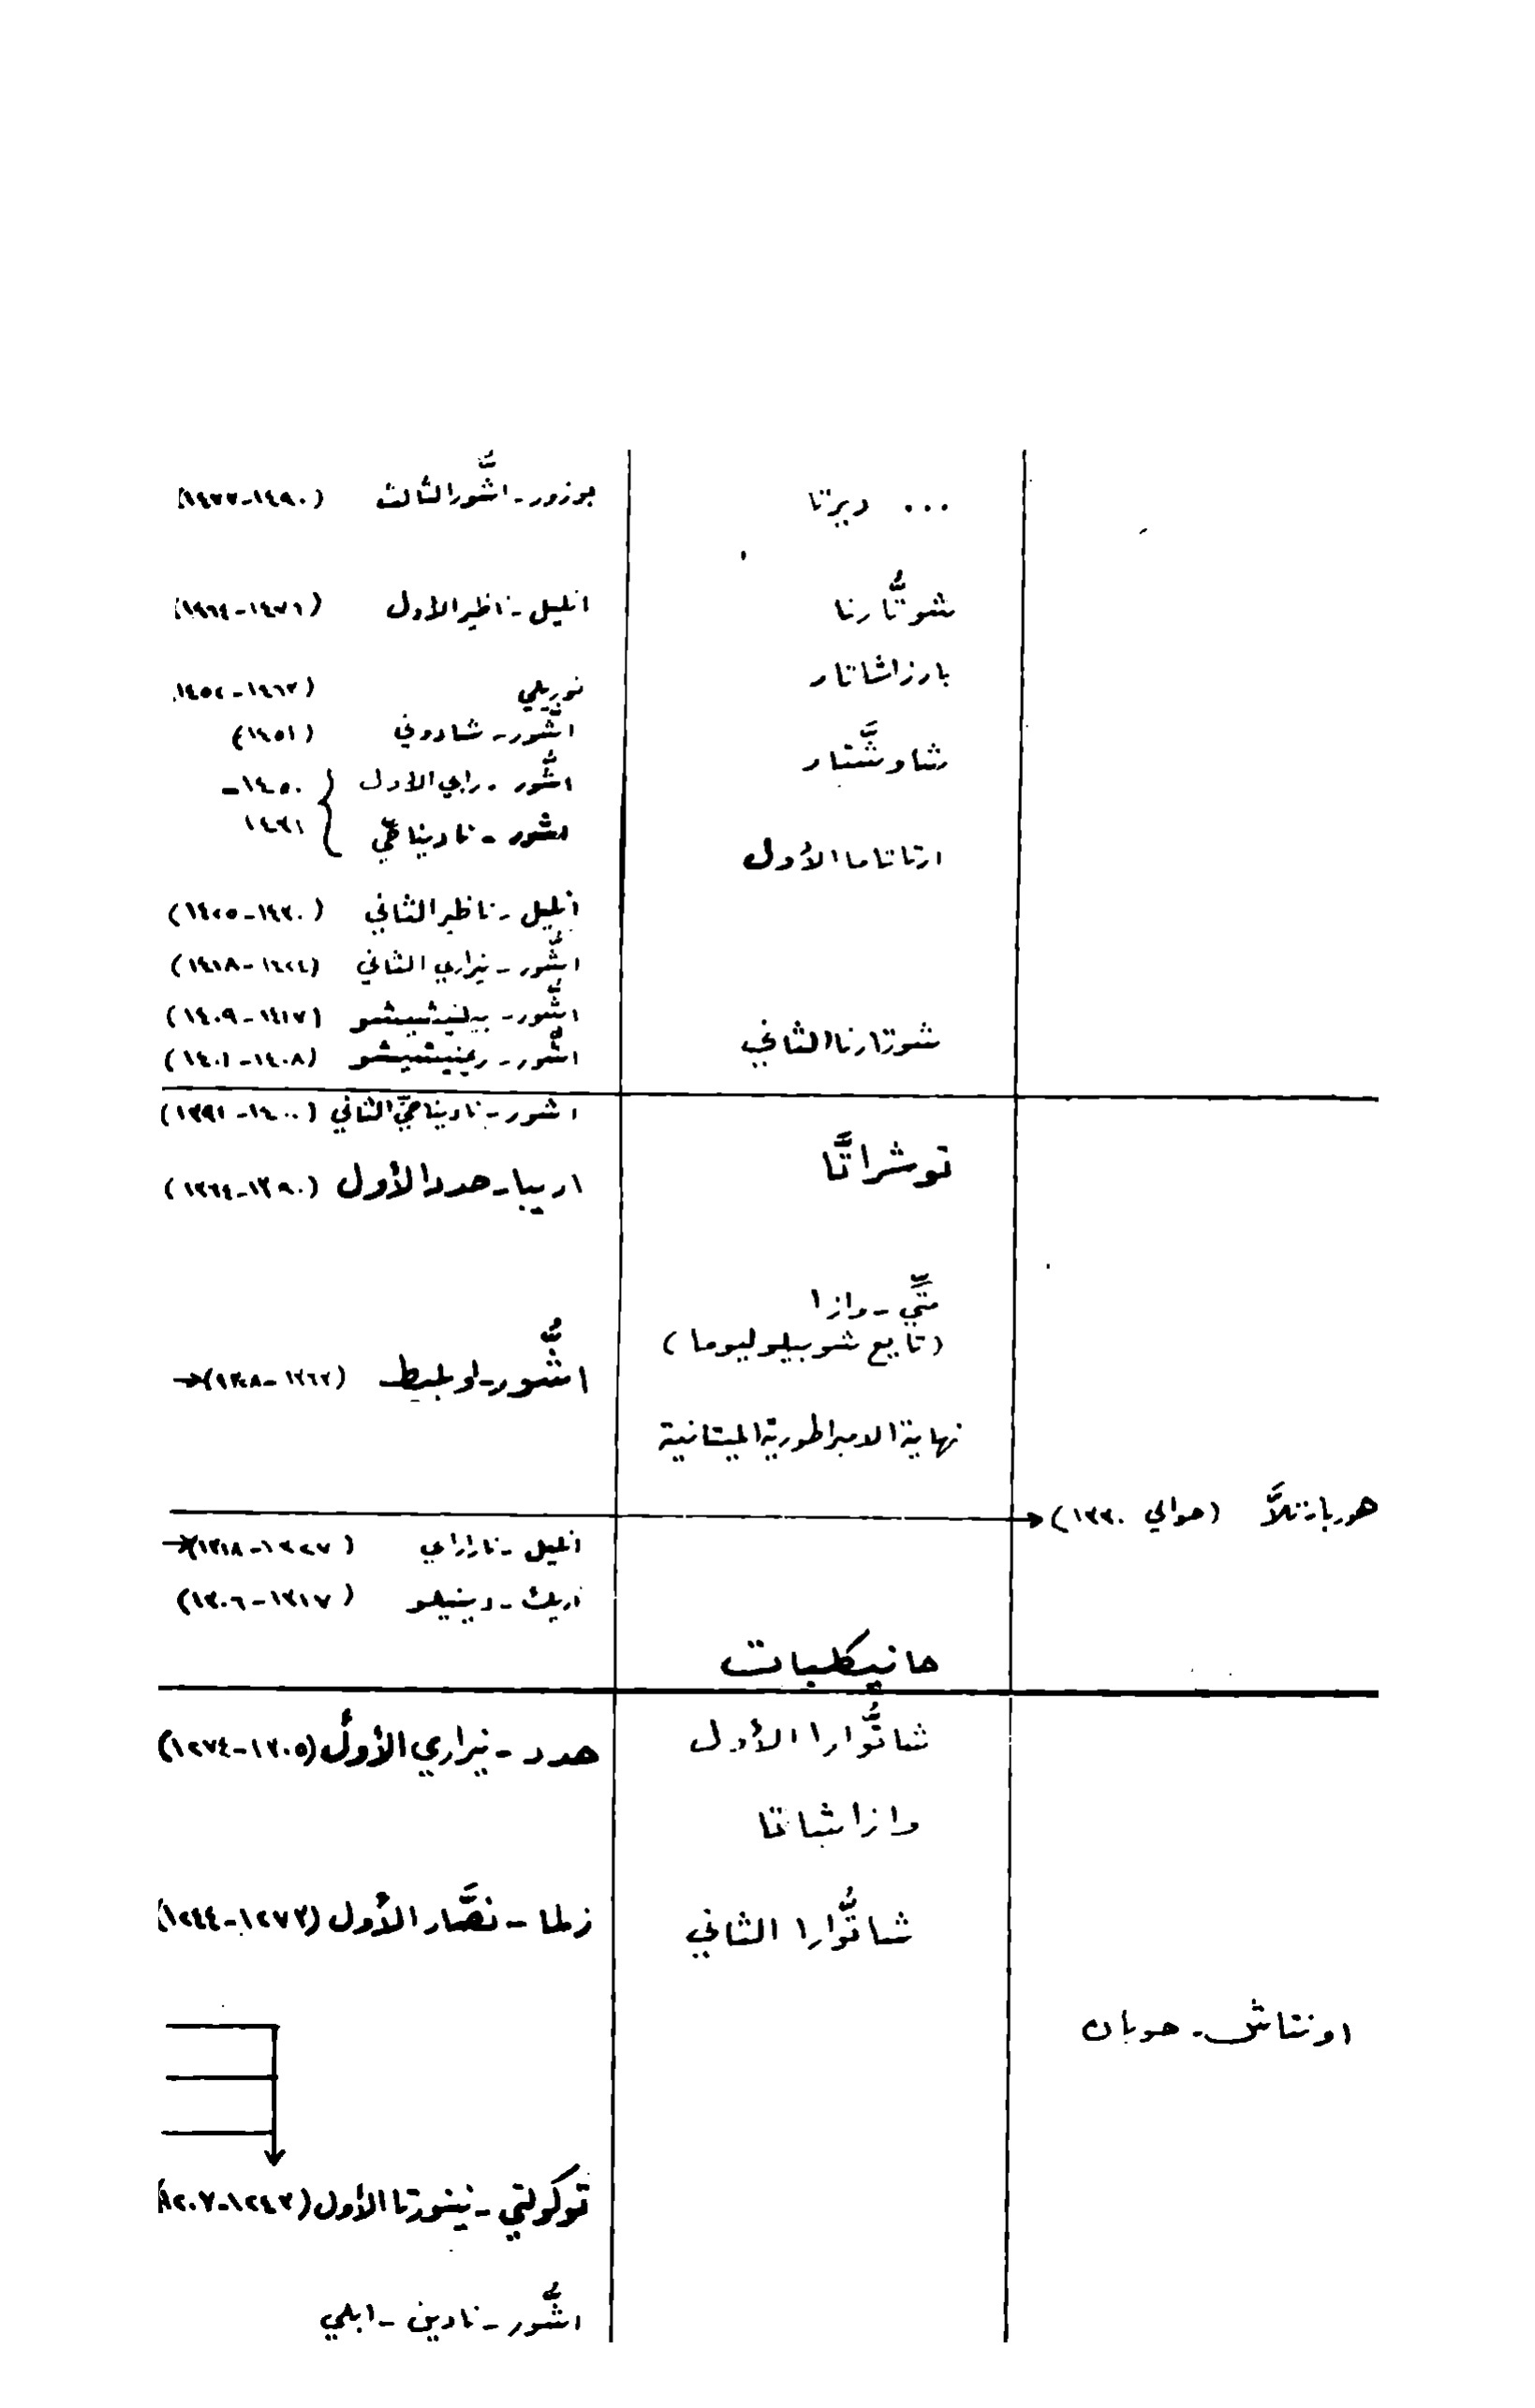 ... ديرتا
بوزور - اشُّور الثالث (١٤٩٠-١٤٧٧)
شوتُّارنا
انليل - ناظير الأول (١٤٧٦-١٤٦٤)
بارزاشاتار
نوريلي (١٤٦٣-١٤٥٢)
اشُّور - شادوني (١٤٥١)
شاوشَّتار
اشُّور - رابي الأول
اشور - ناديناخّي
{ ١٤٥٠-
١٤٣١
ارتاتاما الأول
انليل - ناظير الثاني (١٤٣٠-١٤٢٥)
اشُّور - نيراري الثاني (١٤٢٤-١٤١٨)
اشُّور - بيلنيشيشو (١٤١٧-١٤٠٩)
شوتارنا الثاني
اشُّور - ريمنيشيشو (١٤٠٨-١٤٠١)
اشور - ناديناخّي الثاني (١٤٠٠-١٣٩١)
توشراتَّا
اريبا - حدد الأول (١٣٩٠-١٣٦٤)
متِّي - وازا
(تابع شوبيلوليوما)
اشُّور - اوبليط (١٣٦٣-١٣٢٨)→
نهاية الامبراطورية الميتانية
هورباتلاَّ (حوالي ١٣٣٠)←
انليل - ناراراي (١٣٢٧-١٣١٨)→
اريك - دينيلو (١٣١٧-١٣٠٦)
حانيكلبات
شاتُّوارا الأول
حدد - نيراري الأول (١٣٠٥-١٢٧٤)
وازاشاتا
شاتُّوارا الثاني
زلما - نصَّار الأول (١٢٧٣-١٢٤٤)
اونتاش - حوبان
توكولتي - نينورتا الأول (١٢٤٣-١٢٠٧)
اشُّور - نادين - ابلي